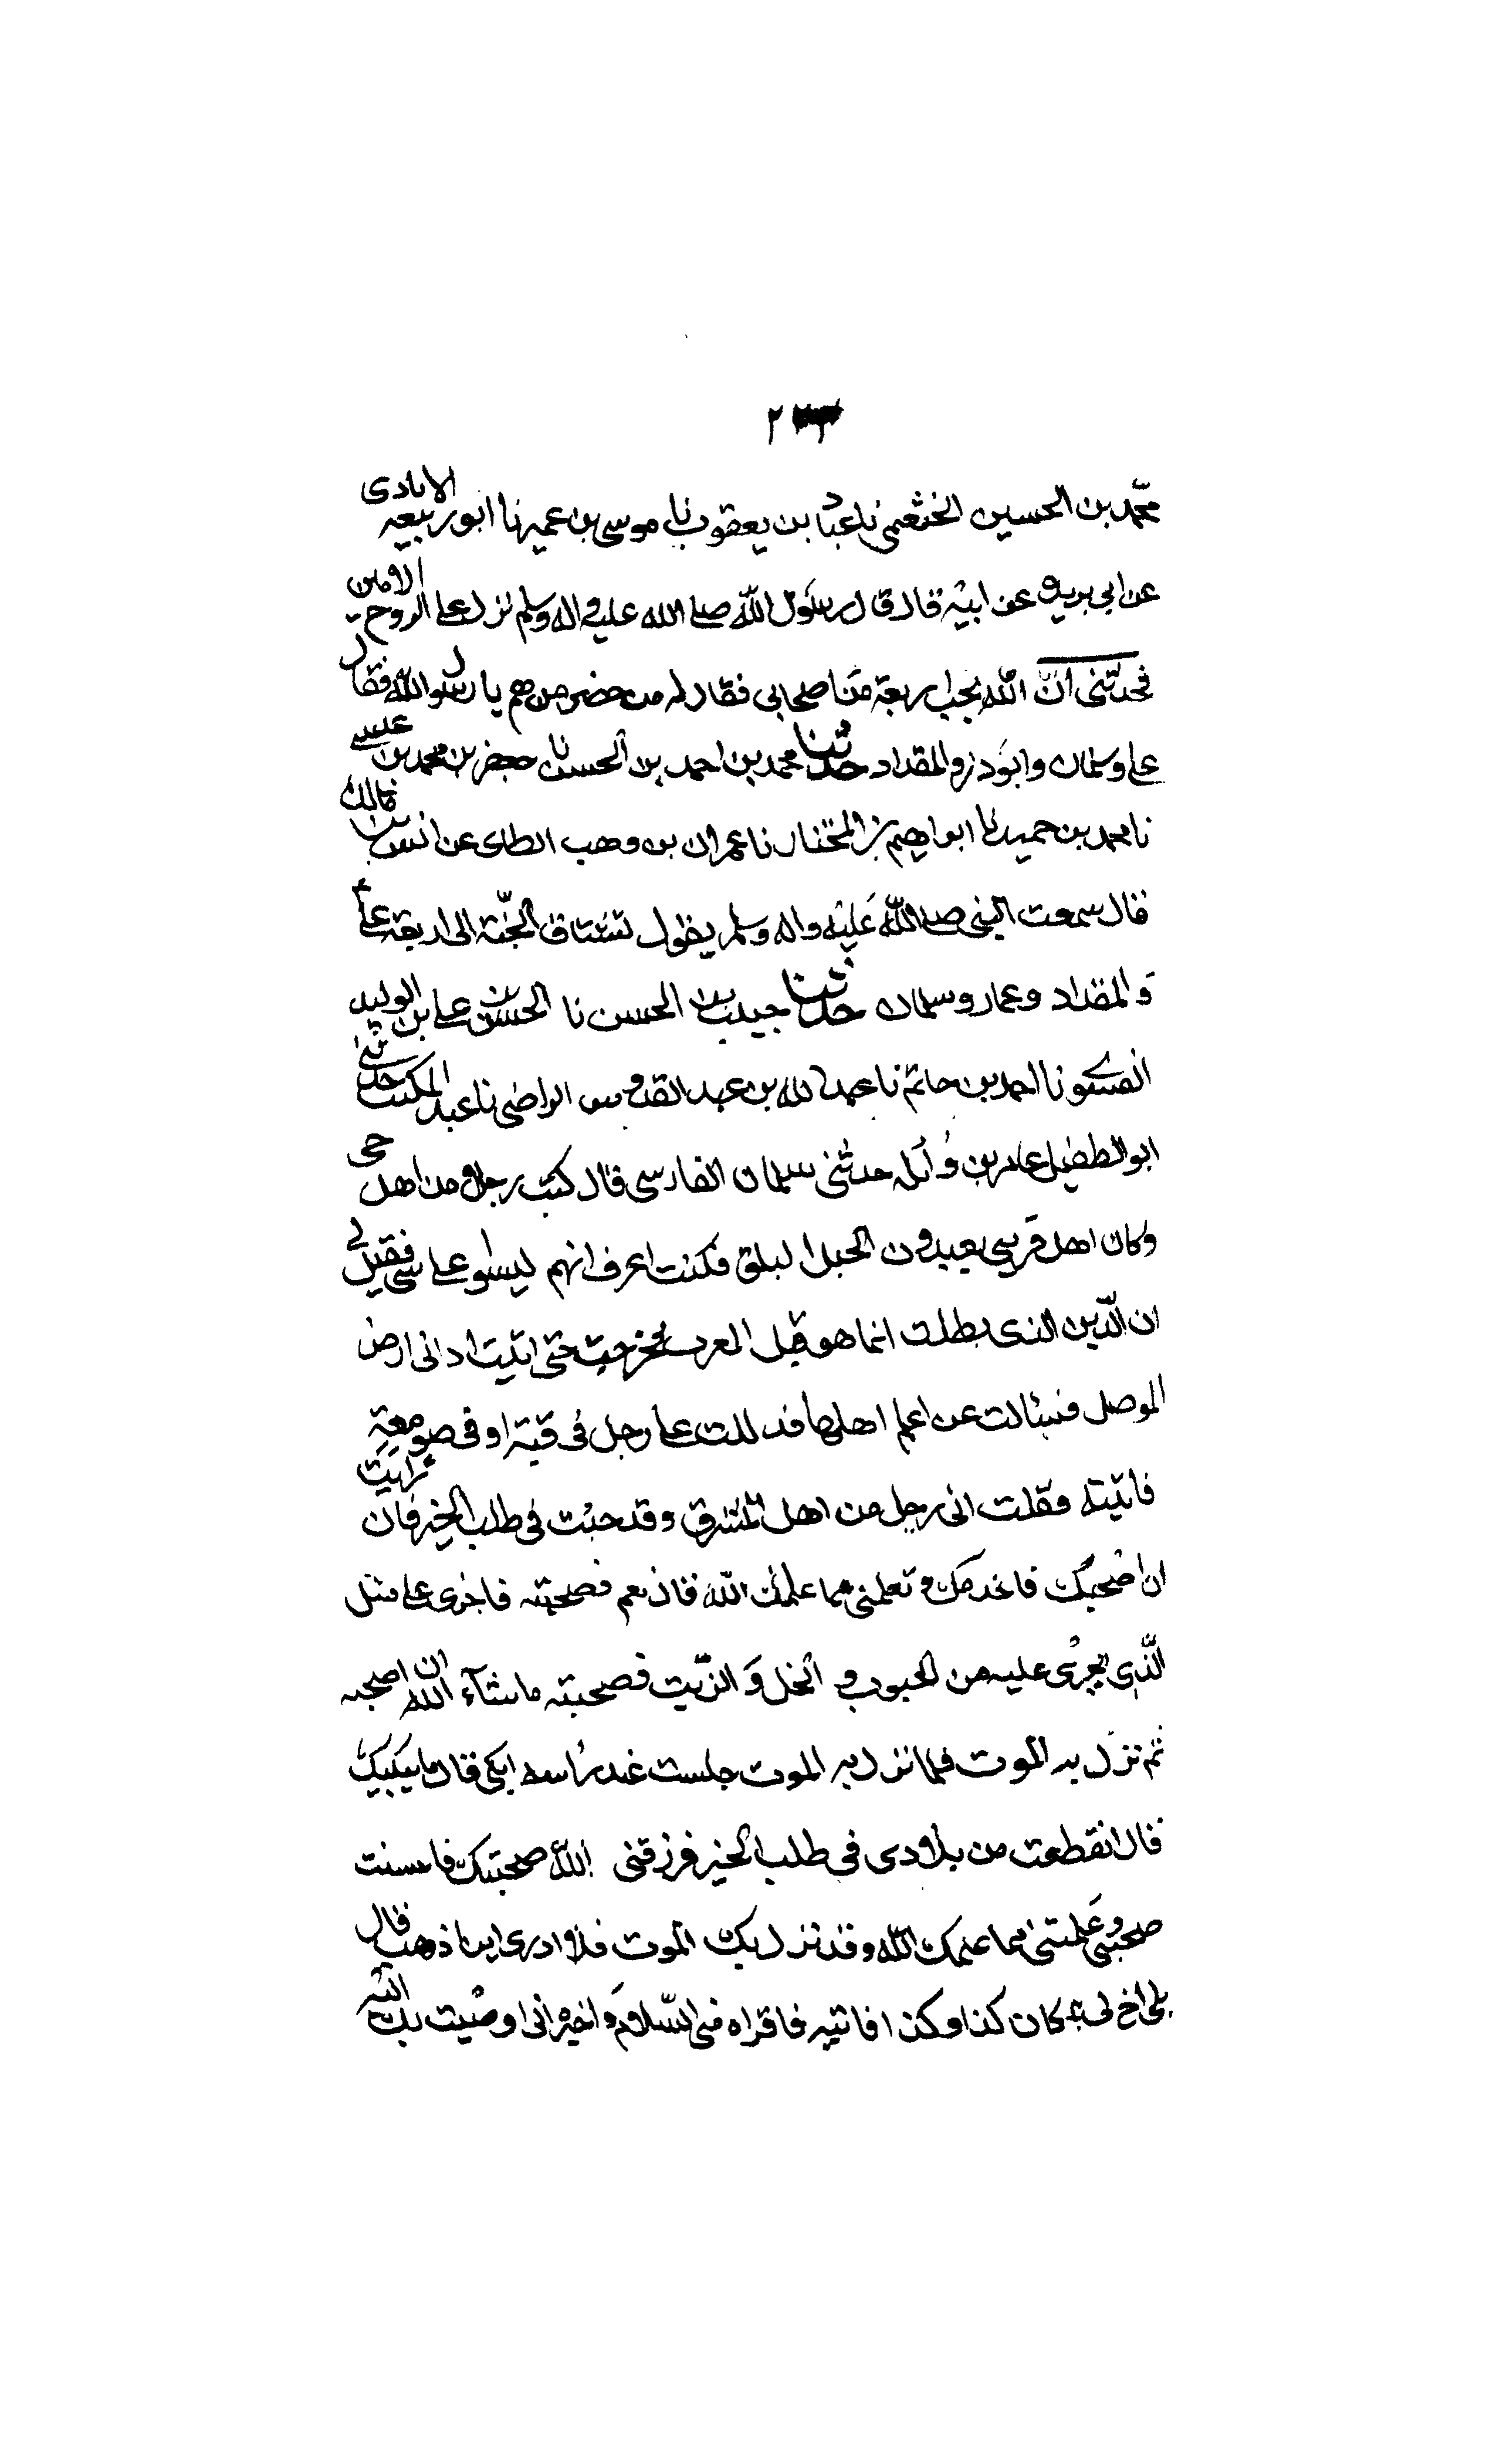 محمد بن الحسين الخثعمي نا عباد بن يعقوب نا موسى بن عمير نا ابو ربيعه الايادى
عن ابي بريده عن ابيه قال قال رسول الله صلى الله عليه واله وسلم نزل على الروح الامين
فحدثنى ان الله يحب اربعة من اصحابى فقال له من حضر من هم يا رسول الله فقال
على وسلمان وابوذر والمقداد حدثنا محمد بن احمد بن الحسن نا جعفر بن محمد بن عيسى
نا محمد بن حميد نا ابراهيم بن المختار نا عمران بن وهب الطاى عن انس بن مالك
قال سمعت النبى صلى الله عليه واله وسلم يقول تشتاق الجنة الى اربعة على
والمقداد وعمار وسلمان حدثنا حبيب بن الحسن نا الحسن بن على بن الوليد
الفسوى نا احمد بن حاتم نا عبد الله بن عبد القدوس الرازى نا عبيد المكتب حدثنى
ابو الطفيل عامر بن واثله حدثنى سلمان الفارسى قال كنت رجلا من اهل جى
وكان اهل قريتى يعبدون الخيل البلق فكنت اعرف انهم ليسوا على شى فقيل لى
ان الدين الذى تطلب انما هو قبل المغرب فخرجت حتى اتيت ادانى ارض
الموصل فسئالت عن اعلم اهلها فدللت على رجل فى قبة او فى صومعة
فاتيته فقلت انى رجل من اهل المشرق وقد جئت فى طلب الخير فان رايت
ان اصحبك فاخدمك وتعلمنى مما علمك الله قال نعم فصحبته فاجرى على مثل
الذى يجرى عليه من الحبوب و الخل و الزيت فصحبته ما شآء الله ان اصحبه
ثم نزل به الموت فلما نزل به الموت جلست عند راسه ابكى قال ما يبكيك
قال انقطعت من بلادى فى طلب الخير فرزقنى الله صحبتك فاحسنت
صحبتى وعلمتنى مما علمك الله وقد نزل بك الموت فلا ادرى اين اذهب قال
بلى اخ لى بمكان كذا وكذا فاتيه فاقراه منى السلام واخبره انى اوصيت بك اليه